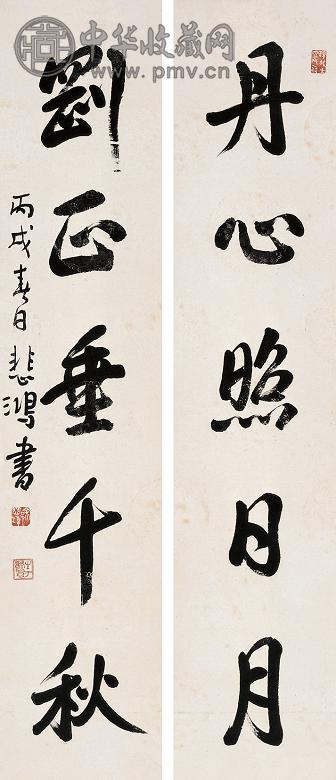 丹心照日月
剛正垂千秋
丙戌春日悲鴻書
中华收藏网
www.pmv.cn